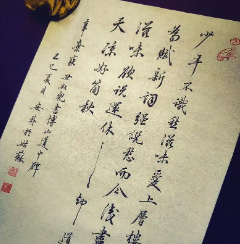 少年不識愁滋味愛上層樓
為賦新詞強說愁而今識盡
滋味欲說還休
天涼好箇秋
辛棄疾丑奴兒書博山道中壁
乙巳夏月